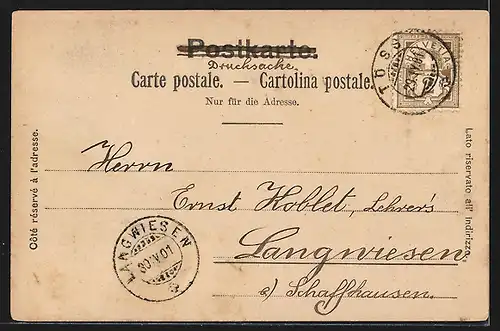 Postkarte.
Drucksache
Carte postale. — Cartolina postale.
Nur für die Adresse.
TÖSS
HELVETIA
2
Côté réservé à l'adresse.
Lato riservato all' indirizzo.
Herrn
Ernst Hoblet, Lehrer's
Langwiesen
a/ Schaffhausen.
LANGWIESEN
30.IV.01